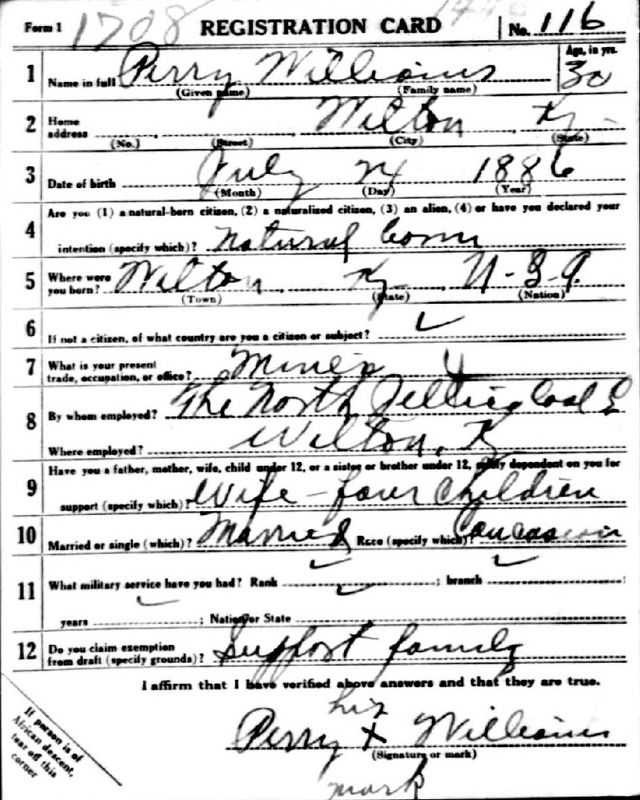 Form 1 1708 REGISTRATION CARD No. 116
1 Name in full Perry Williams Age, in yrs. 30
(Given name) (Family name)
2 Home address Wilton, Ky.
(No.) (Street) (City) (State)
3 Date of birth July 24 1886
(Month) (Day) (Year)
4 Are you (1) a natural-born citizen, (2) a naturalized citizen, (3) an alien, (4) or have you declared your
intention (specify which)? Natural born
5 Where were you born? Wilton, Ky U-S-A.
(Town) (State) (Nation)
6 If not a citizen, of what country are you a citizen or subject? ✓
7 What is your present trade, occupation, or office? Miner 4
8 By whom employed? The North Jellico Coal
Where employed? Wilton, Ky
9 Have you a father, mother, wife, child under 12, or a sister or brother under 12, solely dependent on you for
support (specify which)? Wife - four children
10 Married or single (which)? Married Race (specify which)? Caucasian
11 What military service have you had? Rank ✓; branch ✓;
years ✓; Nation or State ✓
12 Do you claim exemption from draft (specify grounds)? Support family
I affirm that I have verified above answers and that they are true.
his
Perry x Williams
(Signature or mark)
mark
If person is of
African descent,
tear off this
corner